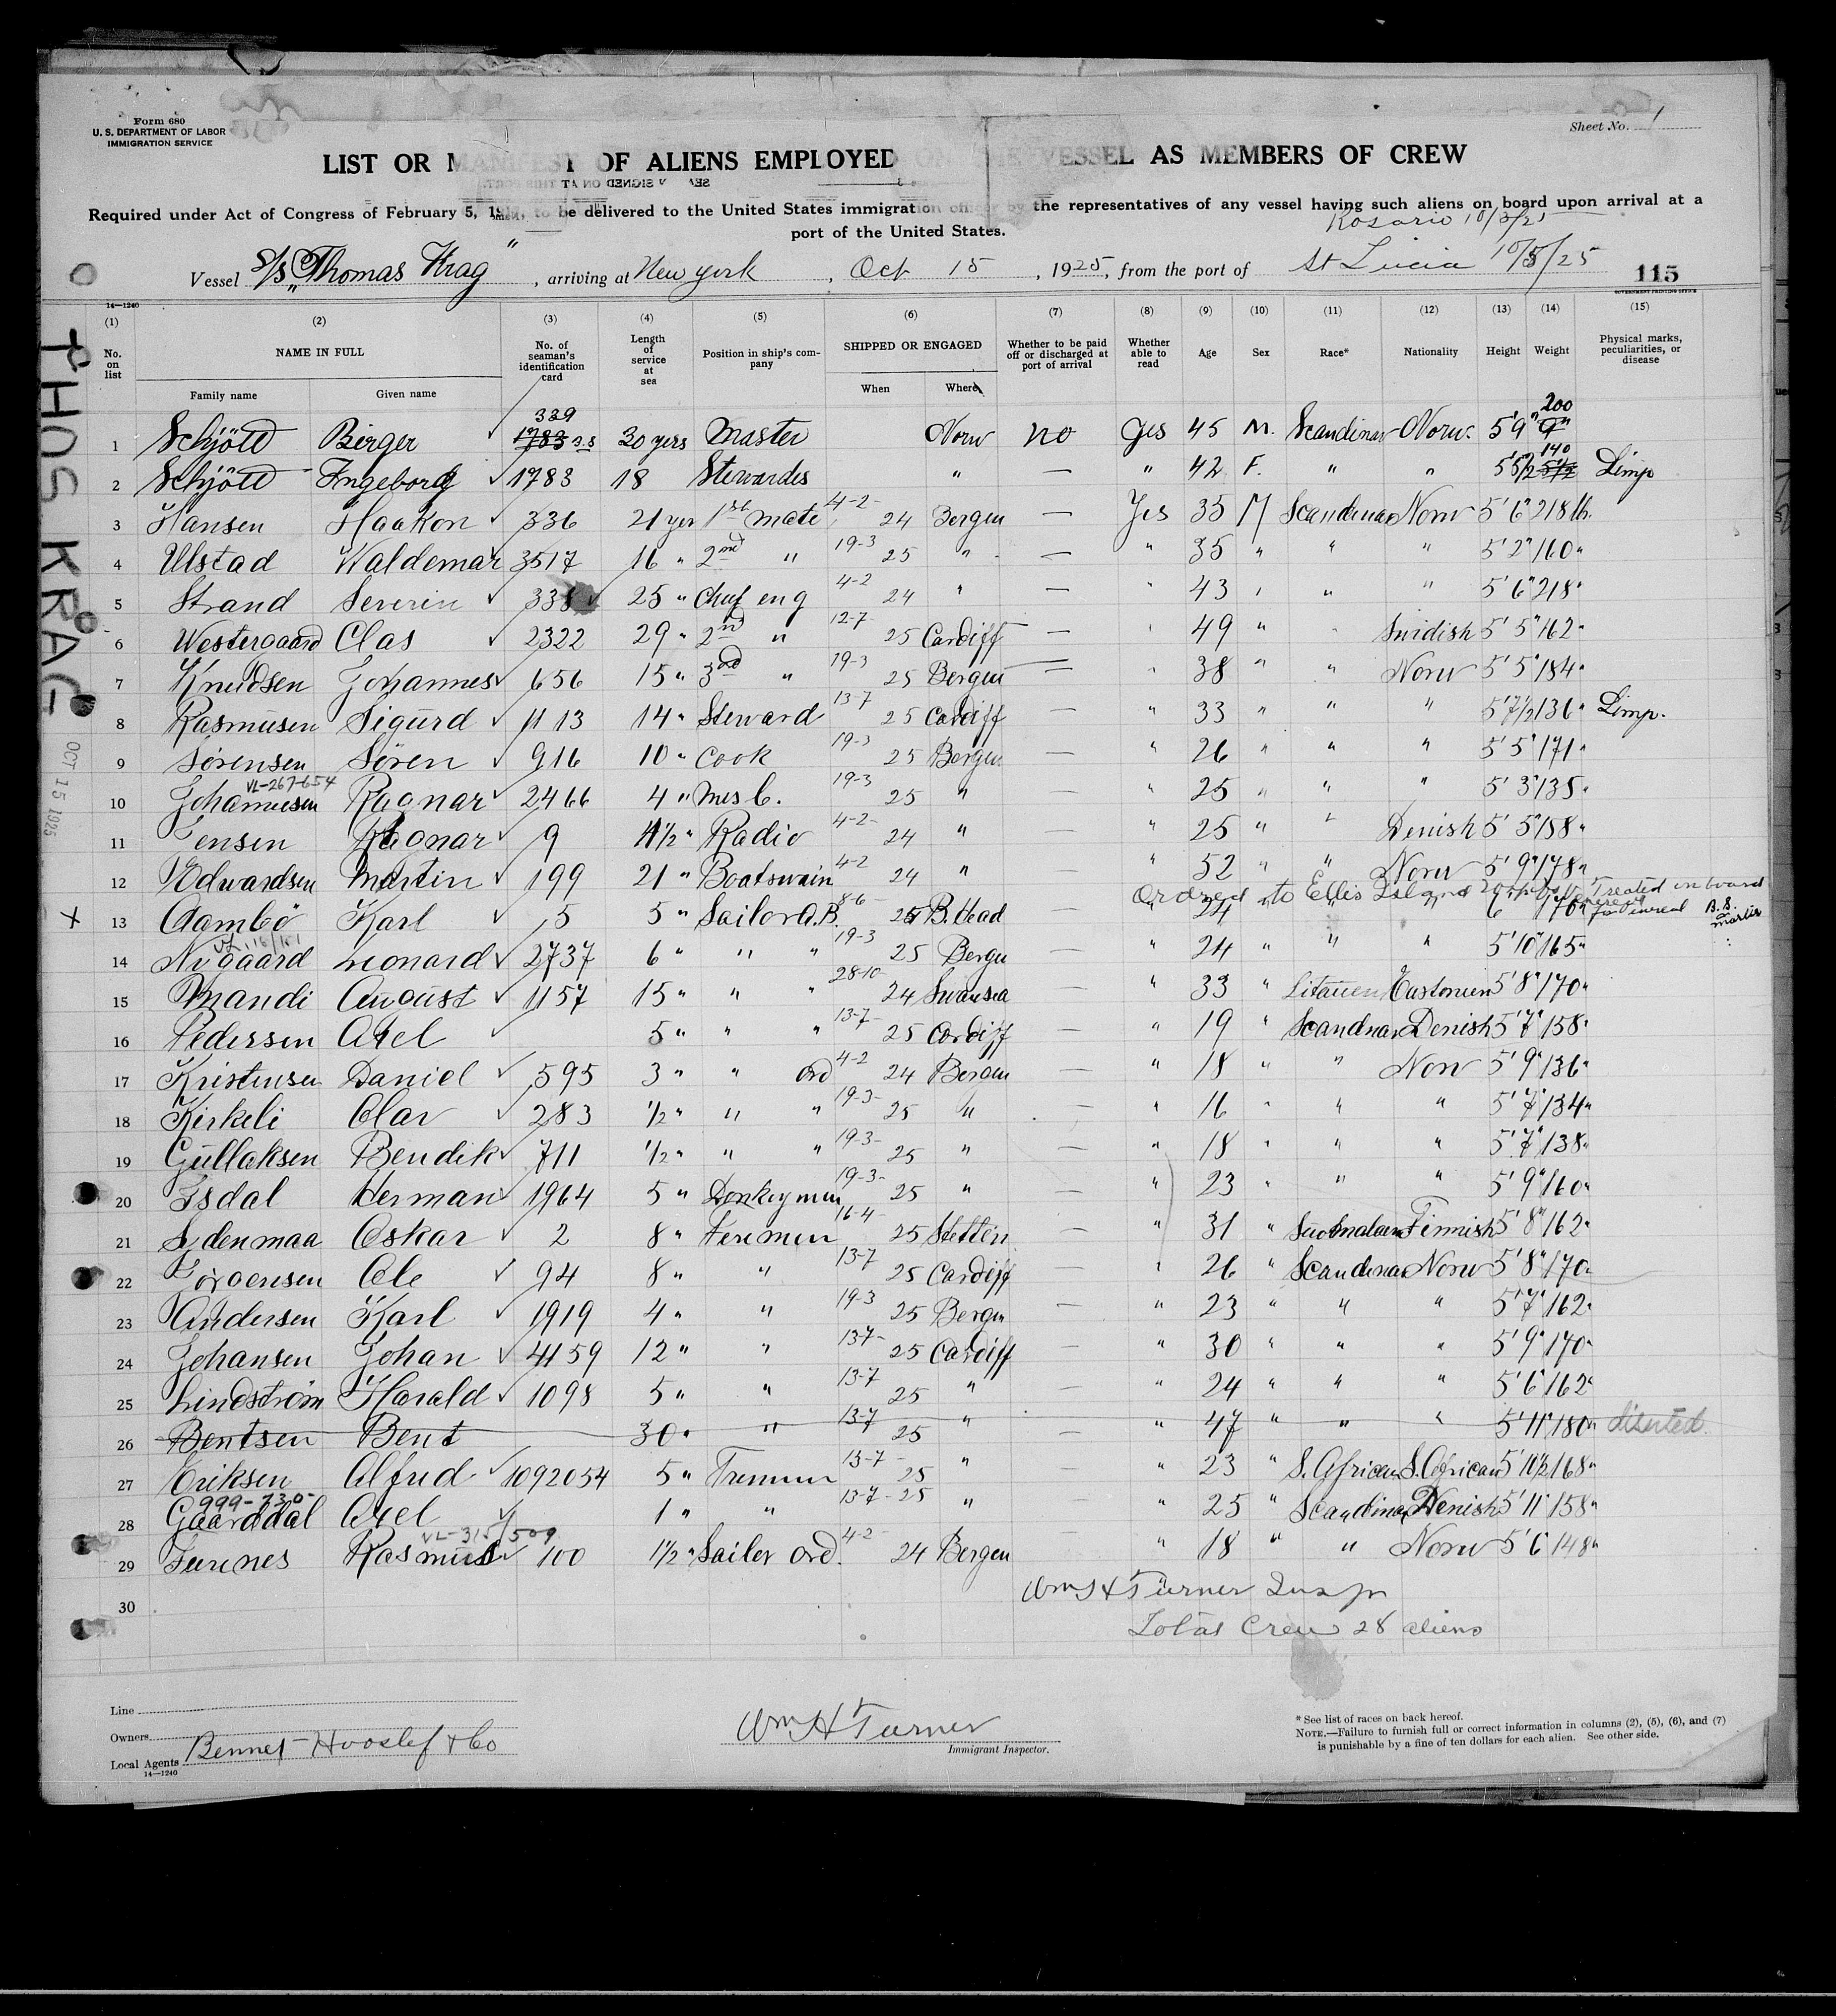 Form 680
U. S. DEPARTMENT OF LABOR
IMMIGRATION SERVICE
Sheet No. 1
LIST OR MANIFEST OF ALIENS EMPLOYED ON THE VESSEL AS MEMBERS OF CREW
Required under Act of Congress of February 5, to be delivered to the United States immigration officer by the representatives of any vessel having such aliens on board upon arrival at a
port of the United States.
Rosario 10/3/25
Vessel S/S "Thomas Krag", arriving at New york, Oct 15, 1925, from the port of St Lucia 10/8/25
115
GOVERNMENT PRINTING OFFICE
14—1240
THOS KRAG
OCT 15 1925
(1) (2) (3) (4) (5) (6) (7) (8) (9) (10) (11) (12) (13) (14) (15)
No. on list
NAME IN FULL
Family name
Given name
No. of seaman's identification card
Length of service at sea
Position in ship's company
SHIPPED OR ENGAGED
When
Where
Whether to be paid off or discharged at port of arrival
Whether able to read
Age
Sex
Race*
Nationality
Height
Weight
Physical marks, peculiarities, or disease
329 200
1 Schjött Birger 1783 30 yers Master Norw no yes 45 M. Scandinav Norw. 5'9"
140
2 Schjött Ingeborg 1783 18 Stewardes " — " 42 F. " " 5'5 1/2 Limp
3 Hansen Haakon 336 21 yer 1st mate 4-2- 24 Bergen — Yes 35 M Scandinav Norw 5'6" 218 lb.
4 Ulstad Waldemar 3517 16 " 2nd " 19-3 25 " — " 35 " " " 5'2" 160 "
5 Strand Severin 338 25 " Chief eng 4-2 24 " — " 43 " " " 5'6" 218 "
6 Westergaard Clas 2322 29 " 2nd " 12-7- 25 Cardiff — " 49 " " Swidish 5'5" 162 "
7 Knudsen Johannes 656 15 " 3nd " 19-3 25 Bergen — " 38 " " Norw 5'5" 184 "
8 Rasmusen Sigurd 1113 14 " Steward 13-7 25 Cardiff — " 33 " " " 5'7 1/2 136 " Limp.
9 Sørensen Sören 916 10 " Cook 19-3 25 Bergen — " 26 " " " 5'5" 171 "
VL-267-654
10 Johannesen Ragnar 2466 4 " Mes b. 19-3 25 " — " 25 " " " 5'3" 135 "
11 Jensen Ragnar 9 4 1/2 " Radio 4-2- 24 " — " 25 " " Denish 5'5" 158 "
12 Edwardsen Martin 199 21 " Boatswain 4-2 24 " — " 52 " " Norw 5'9" 178 "
Ordred to Ellis Island Treated on board
13 Aambö Karl 5 5 " Sailor A.B. 8-6- 25 B. Head — " 24 " " " 6 170 " for venereal
14 Nygaard Leonard 2737 6 " " " 19-3- 25 Bergen " 24 " " " 5'10" 165 "
15 Mandi August 1157 15 " " " 28-10- 24 Swansea " 33 " Litauen Eastonien 5'8" 170 "
16 Pedersen Axel 5 " " " 13-7- 25 Cardiff — " 19 " Scandinav Denish 5'7" 158 "
17 Kristensen Daniel 595 3 " " Ord 4-2 24 Bergen — " 18 " " Norw 5'9" 136 "
18 Kirkeli Olav 283 1/2 " " " 19-3- 25 " — " 16 " " " 5'7" 134 "
19 Gullaksen Bendik 711 1/2 " " " 19-3- 25 " — " 18 " " " 5'7" 138 "
20 Isdal Herman 1964 5 " Donkeymen 19-3- 25 " — " 23 " " " 5'9" 160 "
21 Sydenmaa Oskar 2 8 " Firemen 16-4- 25 Stettin — " 31 " Finnish 5'8" 162 "
22 Jörgensen Ole 94 8 " " 13-7 25 Cardiff — " 26 " Scandinav Norw 5'8" 170 "
23 Andersen Karl 1919 4 " " 19-3 25 Bergen — " 23 " " " 5'7" 162 "
24 Johansen Johan 4159 12 " " 13-7- 25 Cardiff — " 30 " " " 5'9" 170 "
25 Lindström Harald 1098 5 " " 13-7 25 " — " 24 " " " 5'6" 162 "
26 Bentsen Bent 30 " " 13-7 25 " — " 47 " " " 5'11" 180 " diserted.
27 Eriksen Alfred 1092054 5 " Tremmer 13-7- 25 " — " 23 " S. African S. African 5'10 1/2 168 "
999-730-
28 Gaarddal Axel 1 " " 13-7-25 " — " 25 " Scandinav Denish 5'11" 158 "
VL-315/509
29 Furenes Rasmus 100 1 1/2 " Sailer ord. 4-2- 24 Bergen — " 18 " " Norw 5'6" 148 "
30
Wm H Turner Insp
Total Crew 28 aliens
Line
Owners
Local Agents Bennet Hvoslef & Co
14—1240
Wm H Turner
Immigrant Inspector.
* See list of races on back hereof.
NOTE.—Failure to furnish full or correct information in columns (2), (5), (6), and (7)
is punishable by a fine of ten dollars for each alien. See other side.